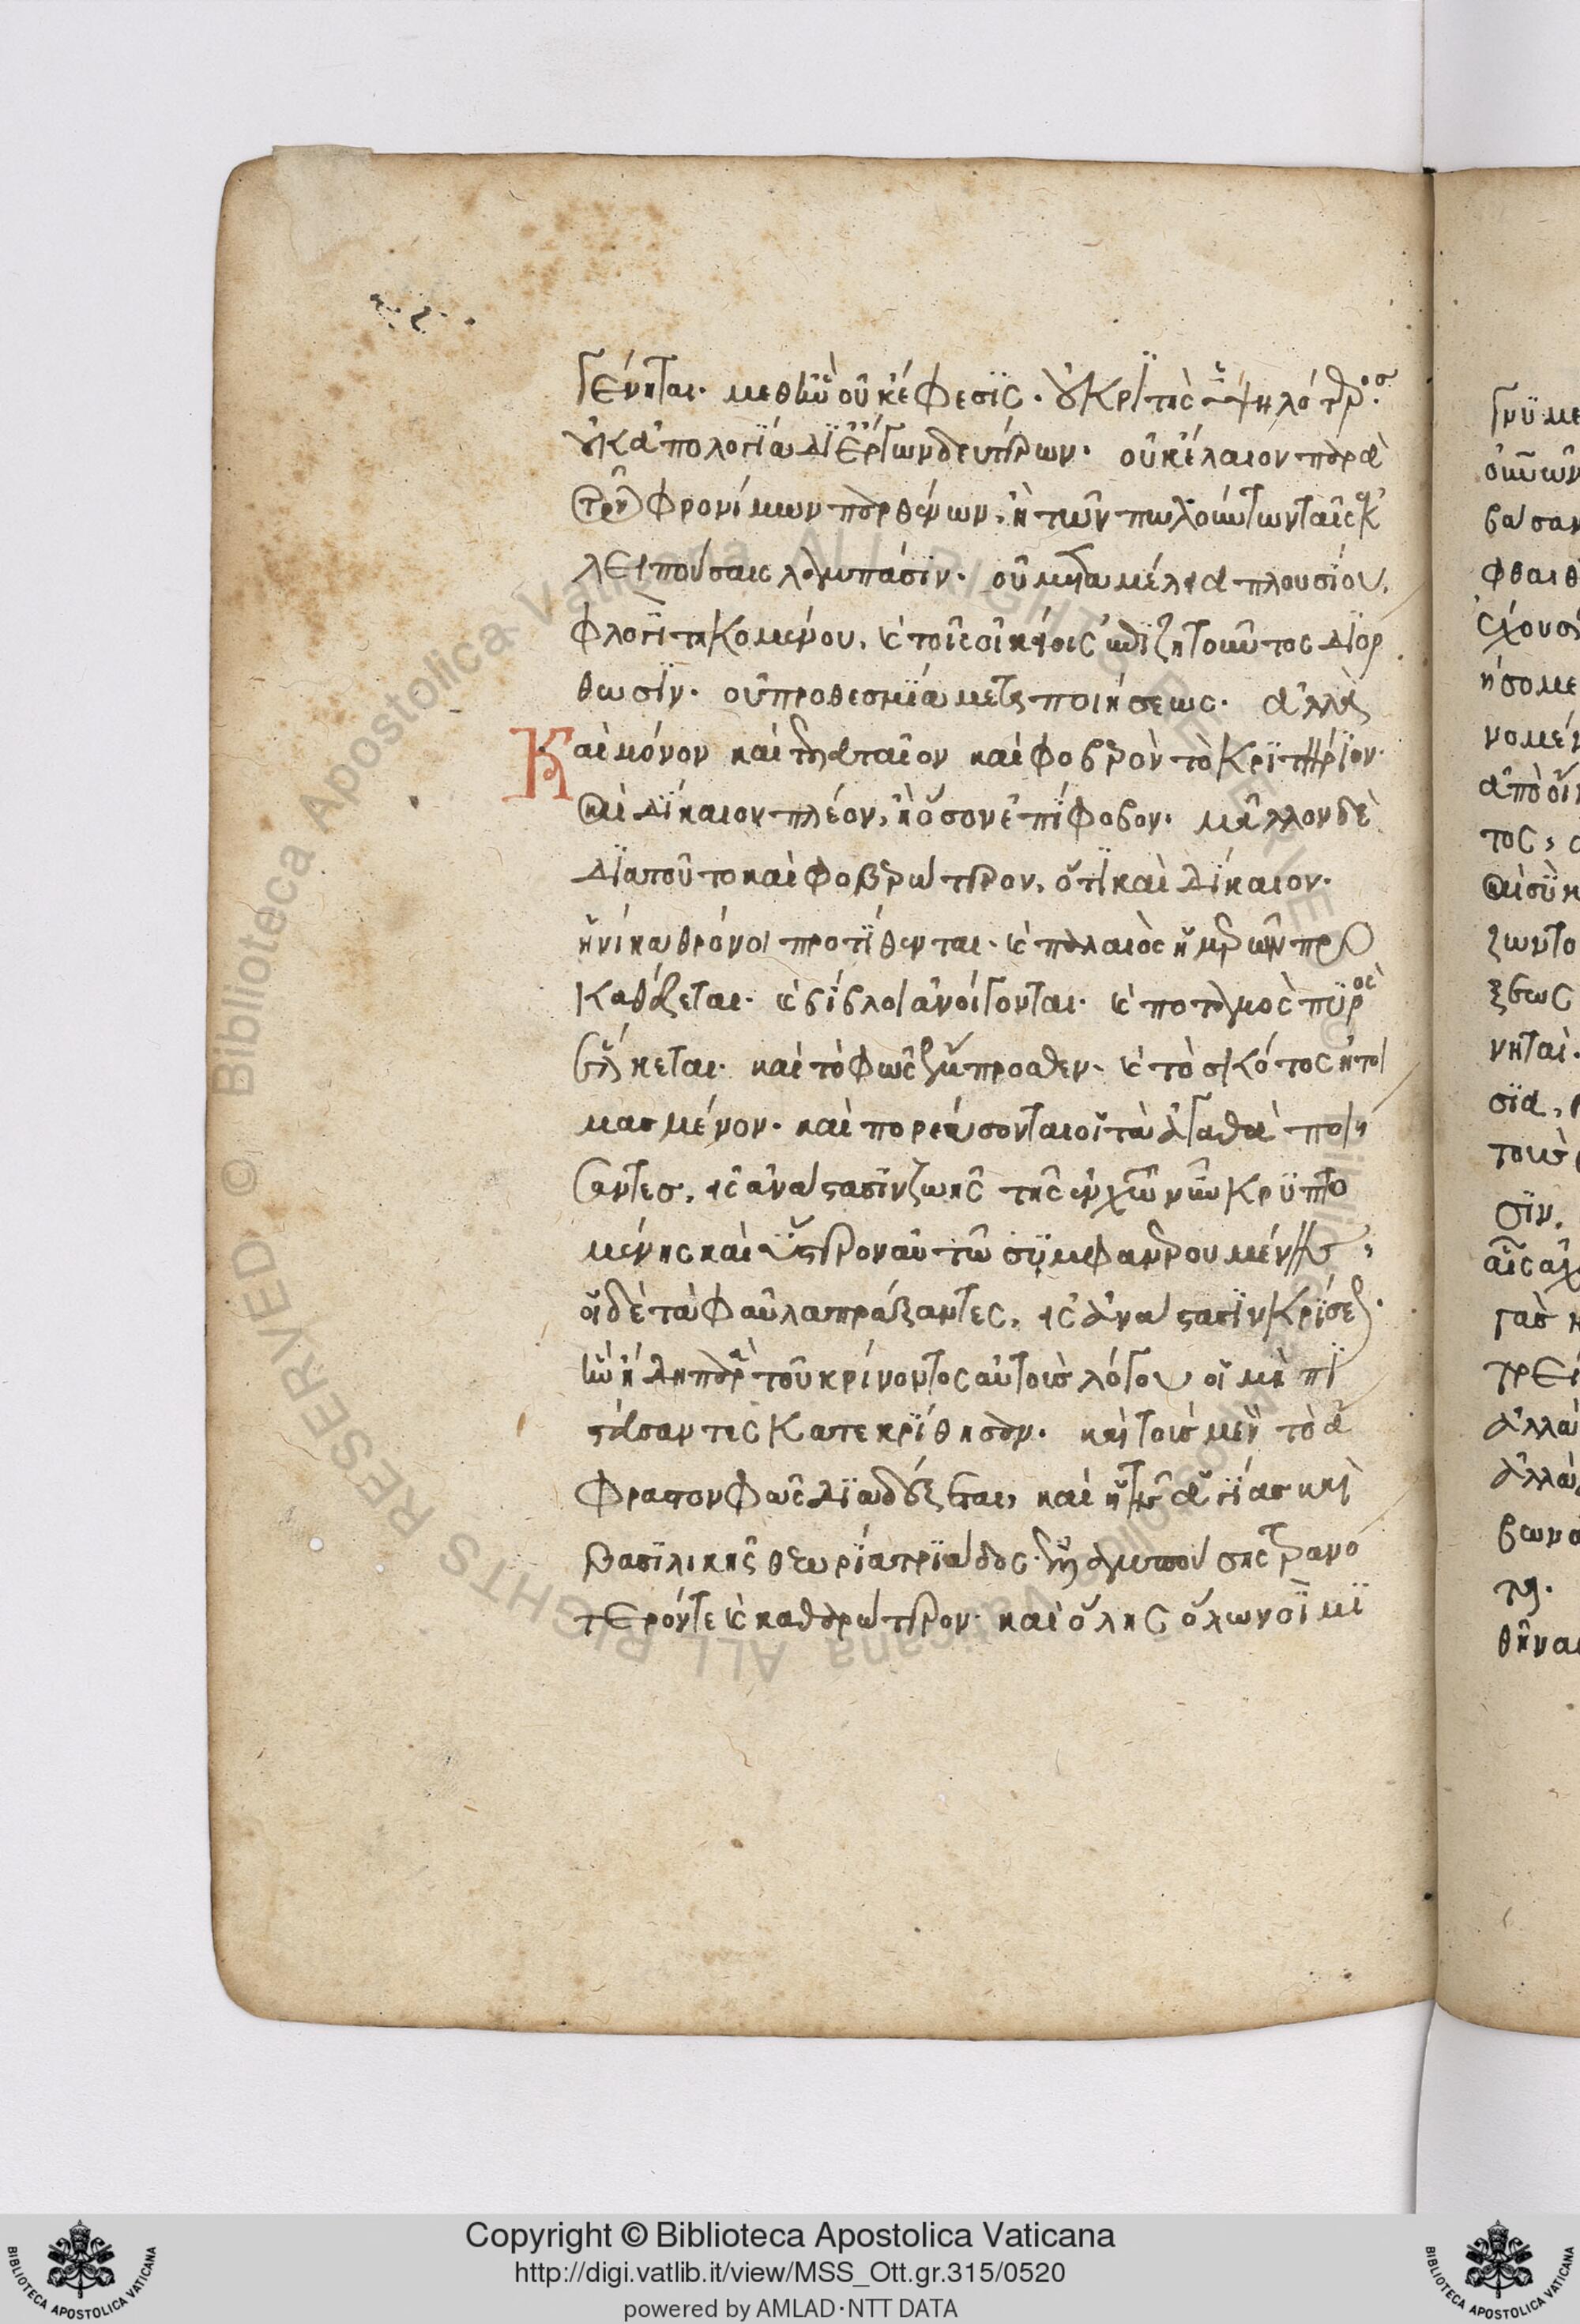 γένηται· μεθ' ἣν οὐκ ἔφεσις· οὐ κριτὴς ὑψηλότερος·
οὐκ ἀπολογία δι' ἔργων δευτέρων· οὐκ ἔλαιον παρὰ
τῶν φρονίμων παρθένων, ἢ τῶν πωλούντων ταῖς ἐκ
λειπούσαις λαμπάσιν· οὐ μεταμέλεια πλουσίου,
φλογὶ τηκομένου, καὶ τοῖς οἰκείοις ἐπιζητοῦντος διόρ
θωσιν· οὐ προθεσμία μεταποιήσεως· ἀλλὰ
Καὶ μόνον καὶ τελευταῖον καὶ φοβερὸν τὸ κριτήριον·
καὶ δίκαιον πλέον, ἢ ὅσον ἐπίφοβον· μᾶλλον δὲ
διατοῦτο καὶ φοβερώτερον, ὅτι καὶ δίκαιον·
ἡνίκα θρόνοι προτίθενται· καὶ παλαιὸς ἡμερῶν προ
καθέζεται· καὶ βίβλοι ἀνοίγονται· καὶ ποταμὸς πυρὸς
ἕλκεται· καὶ τὸ φῶς ἔμπροσθεν· καὶ τὸ σκότος ἡτοι
μασμένον· καὶ πορεύσονται οἱ τὰ ἀγαθὰ ποιή
σαντες, εἰς ἀνάστασιν ζωῆς τῆς ἐν χῶ νῦν κρυπτο
μένης καὶ ὕστερον αὐτῶ συμφανερουμένης,
οἱ δὲ τὰ φαῦλα πράξαντες, εἰς ἀνάστασιν κρίσεως·
ἣν ἤδη παρὰ τοῦ κρίνοντος αὐτοὺς λόγου οἱ μὴ πι
στεύσαντες κατεκρίθησαν· καὶ τοὺς μὲν τὸ ἄ
φραστον φῶς διαδέξεται, καὶ ἡ τῆς ἁγίας καὶ
βασιλικῆς θεωρία τριάδος· ἐλλαμπούσης τρανό
τερόν τε καὶ καθαρώτερον· καὶ ὅλης ὅλω νοῒ μι
Copyright © Biblioteca Apostolica Vaticana
http://digi.vatlib.it/view/MSS_Ott.gr.315/0520
powered by AMLAD·NTT DATA